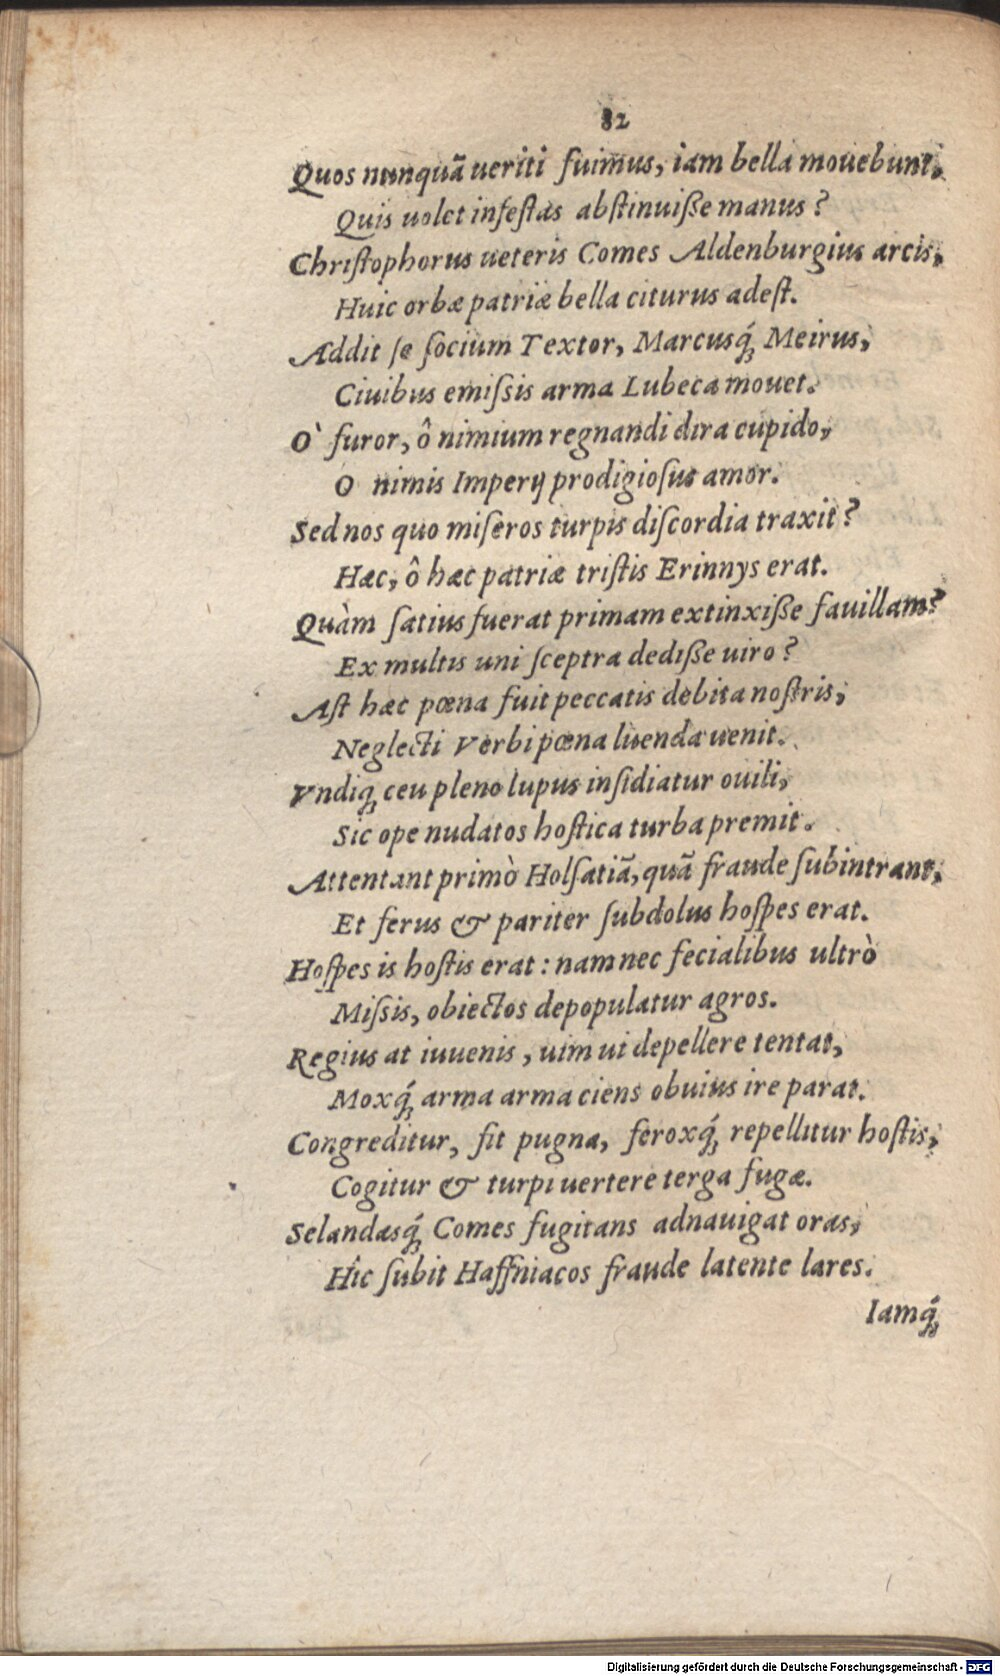 82
Quos nunquã ueriti fuimus, iam bella mouebunt,
Quis uolet infestas abstinuiße manus?
Christophorus ueteris Comes Aldenburgius arcis,
Huic orbæ patriæ bella citurus adest.
Addit se socium Textor, Marcusq́; Meirus,
Ciuibus emissis arma Lubeca mouet.
O` furor, ô nimium regnandi dira cupido,
O nimis Imperij prodigiosus amor.
Sed nos quo miseros turpis discordia traxit?
Hæc, ô hæc patriæ tristis Erinnys erat.
Quàm satius fuerat primam extinxiße fauillam?
Ex multis uni sceptra dediße uiro?
Ast hæc pœna fuit peccatis debita nostris,
Neglecti Verbi pœna luenda uenit.
Vndiq; ceu pleno lupus insidiatur ouili,
Sic ope nudatos hostica turba premit.
Attentant primò Holsatiã, quã fraude subintrant,
Et ferus & pariter subdolus hospes erat.
Hospes is hostis erat: nam nec fecialibus ultrò
Missis, obiectos depopulatur agros.
Regius at iuuenis, uim ui depellere tentat,
Moxq́; arma arma ciens obuius ire parat.
Congreditur, fit pugna, feroxq́; repellitur hostis,
Cogitur & turpi uertere terga fugæ.
Selandasq́; Comes fugitans adnauigat oras,
Hic subit Haffniacos fraude latente lares.
Iamq́;
Digitalisierung gefördert durch die Deutsche Forschungsgemeinschaft - DFG